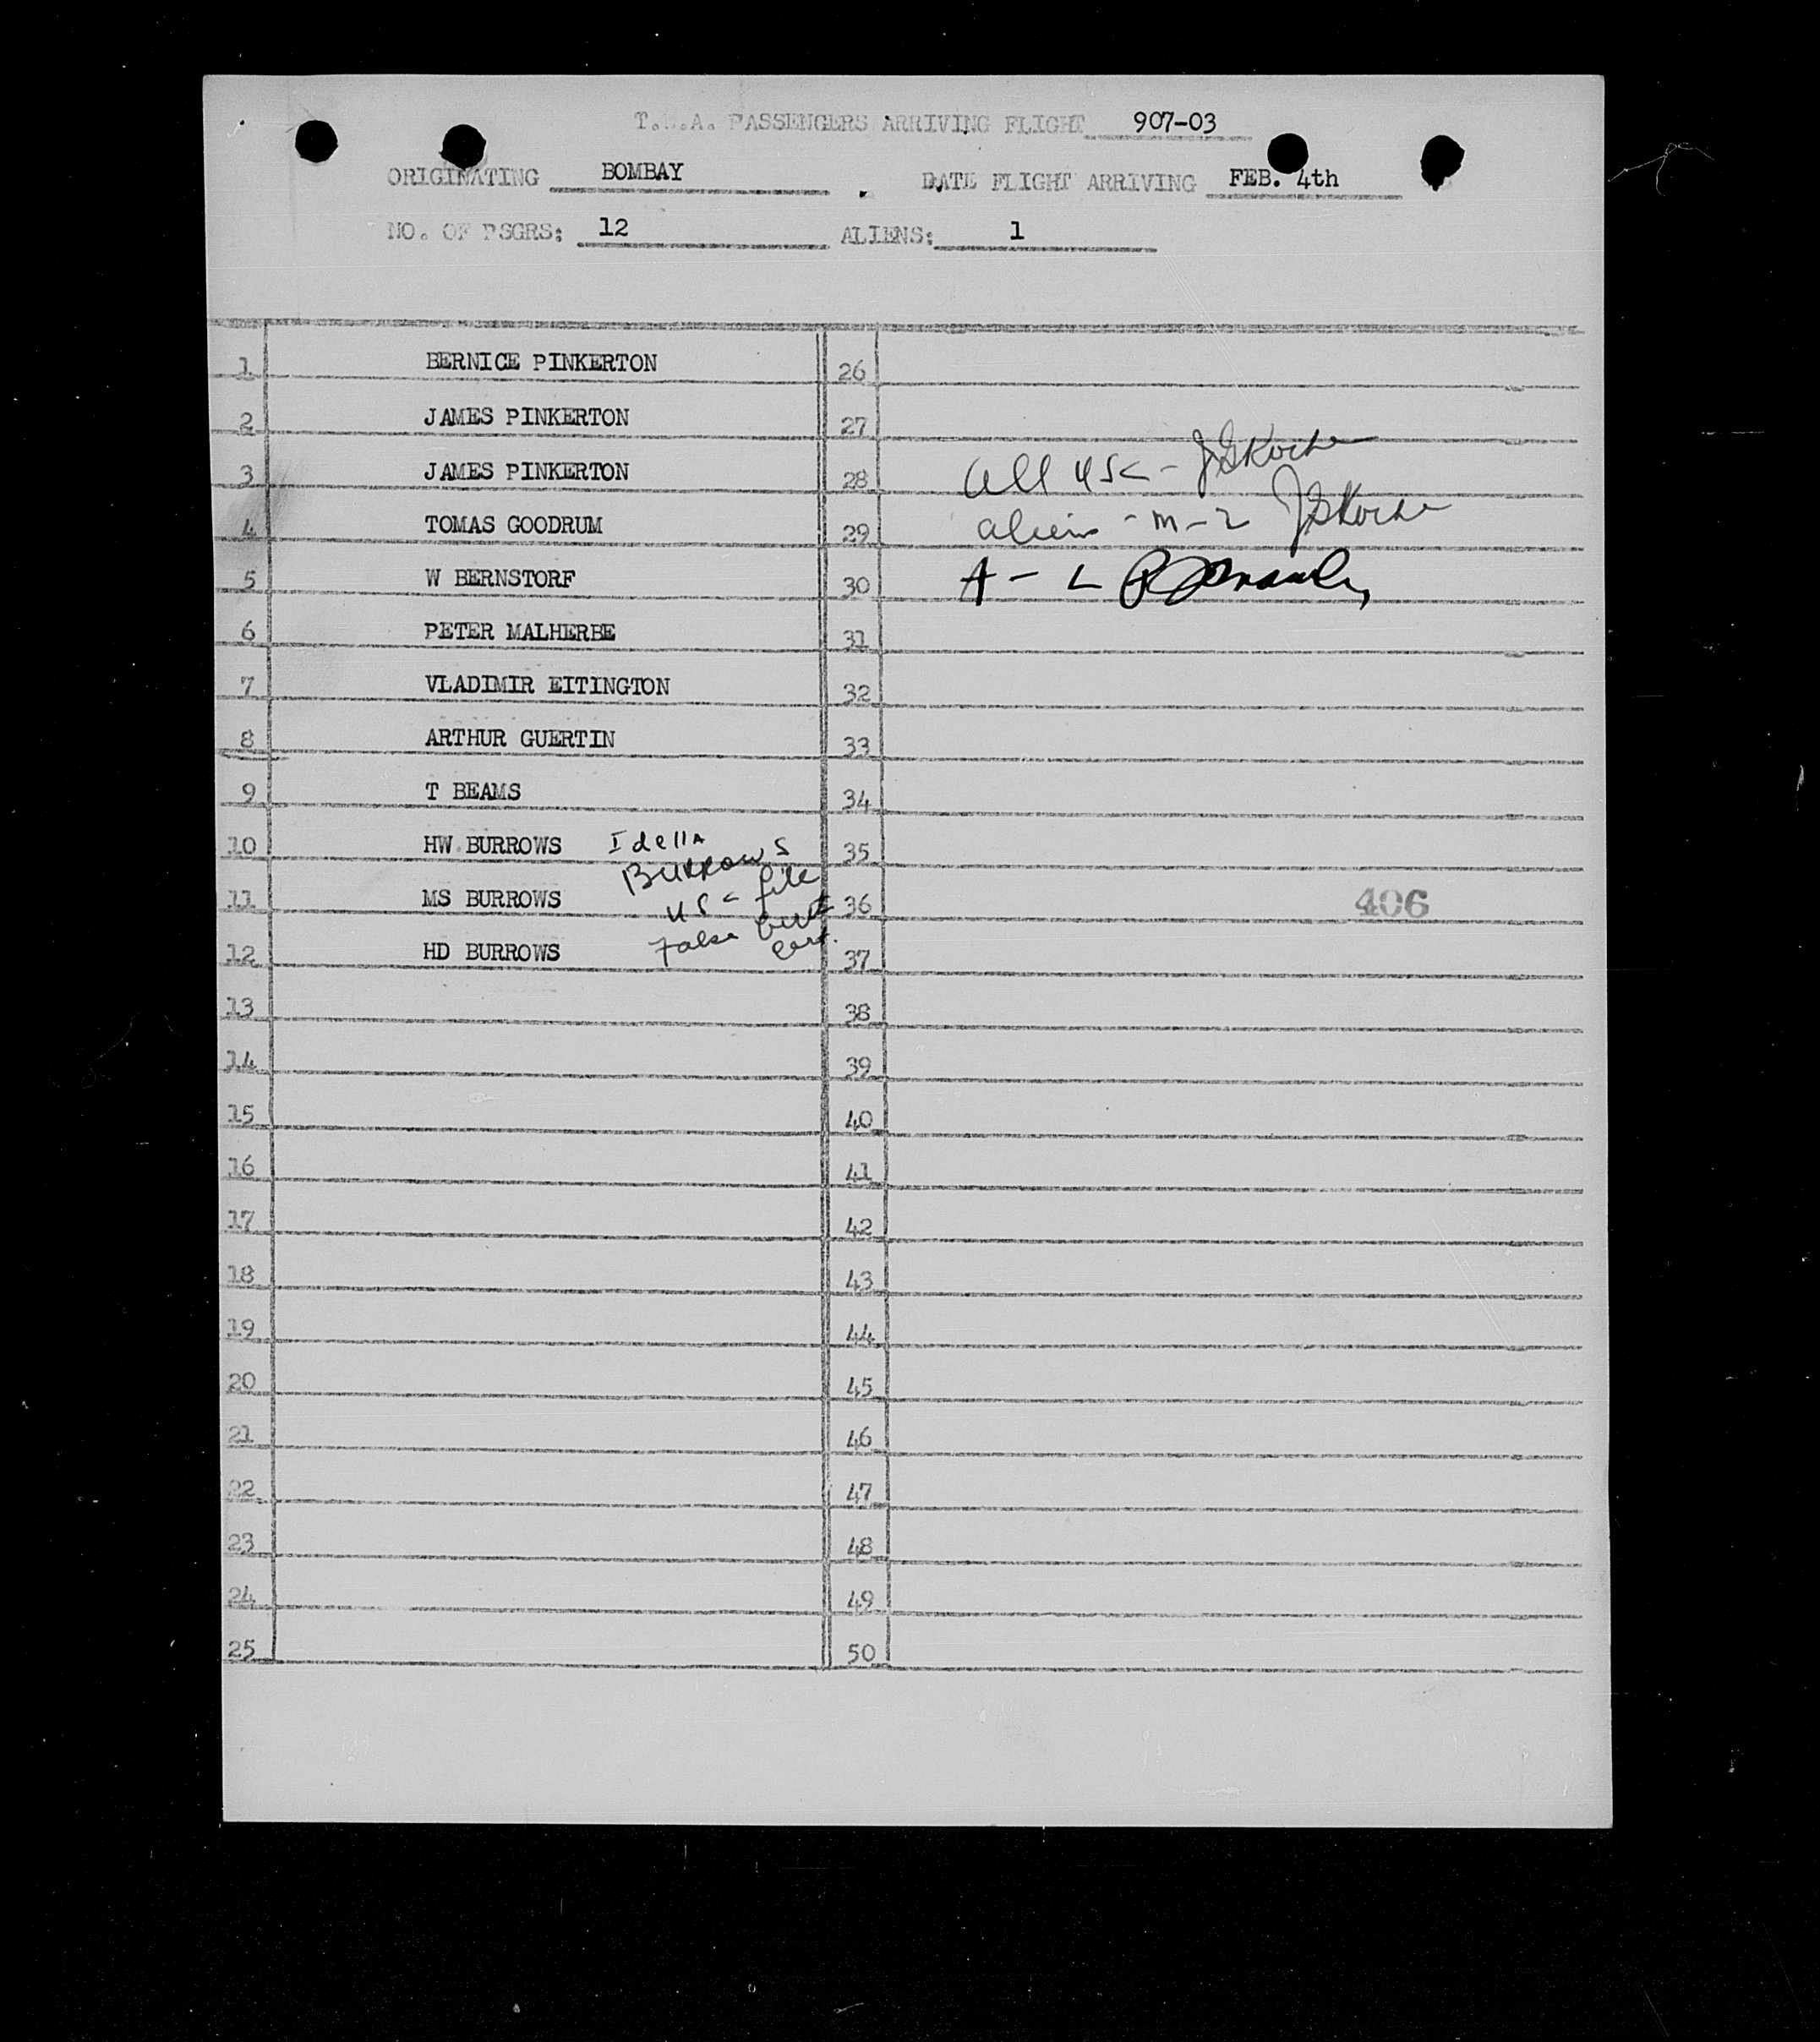 T.W.A. PASSENGERS ARRIVING FLIGHT 907-03
ORIGINATING BOMBAY . DATE FLIGHT ARRIVING FEB. 4th
NO. OF PSGRS: 12 ALIENS: 1
1 BERNICE PINKERTON 26
2 JAMES PINKERTON 27
3 JAMES PINKERTON 28 All USC - JGKoche
4 TOMAS GOODRUM 29 aliens - M-2 JGKoche
5 W BERNSTORF 30 A - L
6 PETER MALHERBE 31
7 VLADIMIR EITINGTON 32
8 ARTHUR GUERTIN 33
9 T BEAMS 34
10 HW BURROWS Idella 35
Burrows
11 MS BURROWS USC file 36 406
False birth
12 HD BURROWS cert. 37
13 38
14 39
15 40
16 41
17 42
18 43
19 44
20 45
21 46
22 47
23 48
24 49
25 50